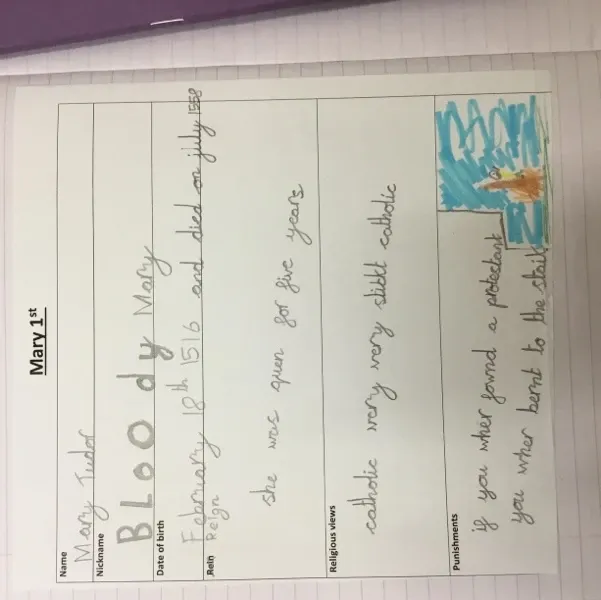 Mary 1st
Name
Mary Tudor
Nickname
BLoody Mary
Date of birth
February 18th 1516 and died on july 1558
Rein
Reign
she was quen for five years
Religious views
catholic very very stickt catholic
Punishments
if you wher fownd a protestant
you wher bernt to the staik